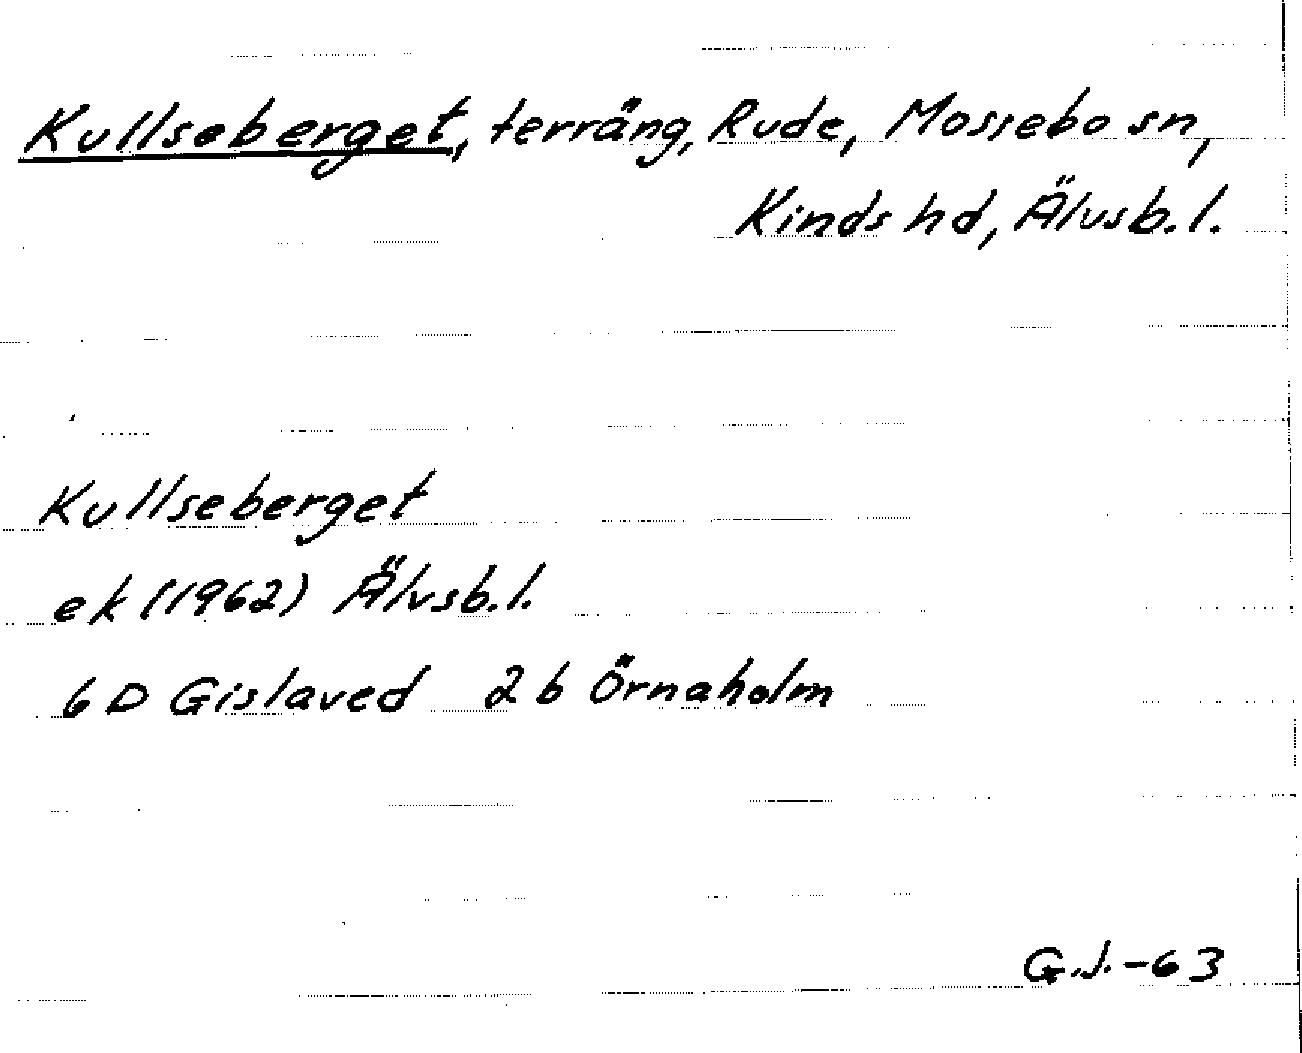 Kullseberget, terräng, Rude, Mossebo sn,
Kinds hd, Älvsb. l.
Kullseberget
ek (1962) Älvsb. l.
6 D Gislaved 2 b Örnaholm
G.J.-63